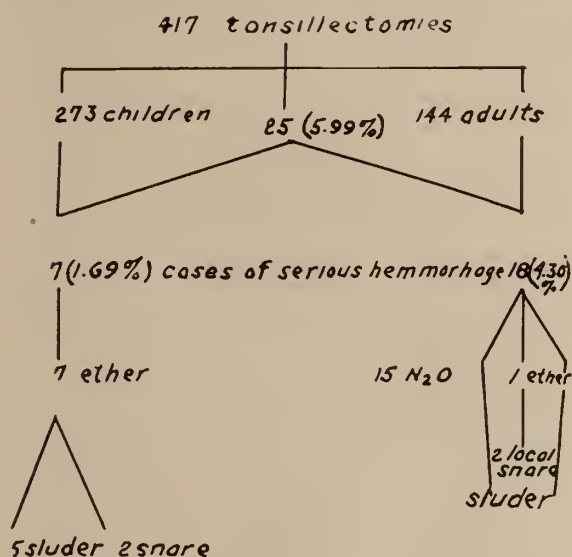 417 tonsillectomies
273 children 25 (5.99%) 144 adults
7 (1.69%) cases of serious hemmorhoge 18 (4.30%)
7 ether 15 N₂O 1 ether
2 local snare
sluder
5 sluder 2 snare